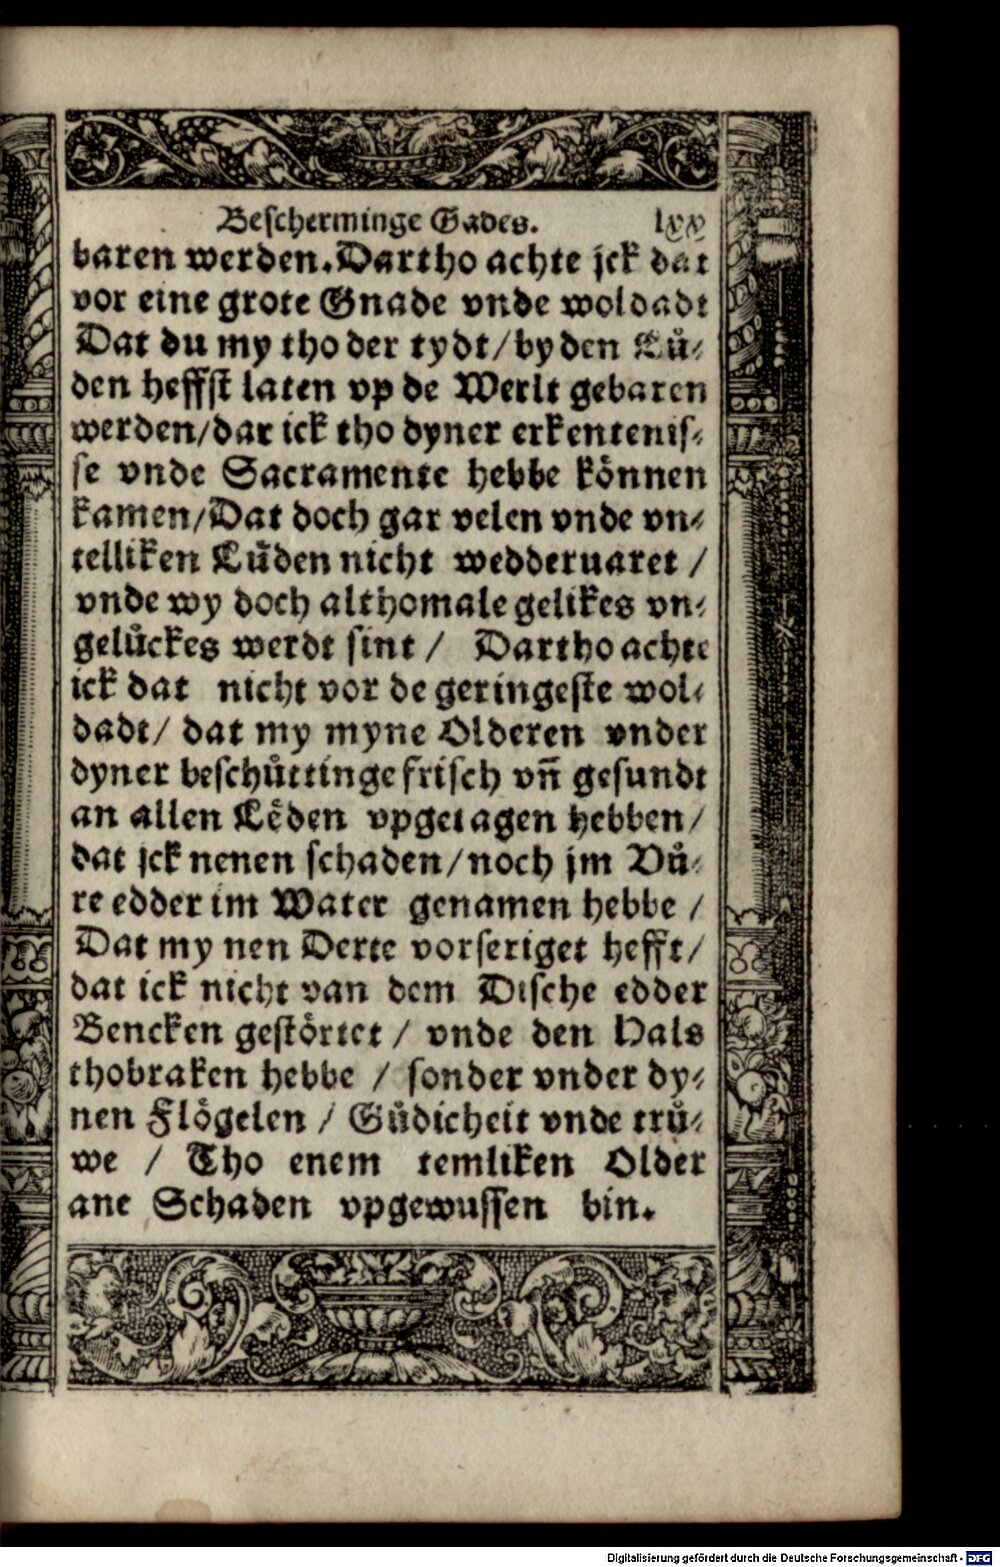 Bescherminge Gades. lxx
baren werden. Dartho achte jck dat
vor eine grote Gnade vnde woldadt
Dat du my tho der tydt / by den Lüͤ⸗
den heffst laten vp de Werlt gebaren
werden / dar ick tho dyner erkentenis⸗
se vnde Sacramente hebbe können
kamen / Dat doch gar velen vnde vn⸗
telliken Luͤden nicht wedderuaret /
vnde wy doch althomale gelikes vn⸗
geluͤckes werdt sint / Dartho achte
ick dat nicht vor de geringeste wol⸗
dadt / dat my myne Olderen vnder
dyner beschuͤttinge frisch vn̄ gesundt
an allen Lēden vpgetagen hebben /
dat jck nenen schaden / noch jm Vuͤ⸗
re edder im Water genamen hebbe /
Dat my nen Derte vorseriget hefft /
dat ick nicht van dem Dische edder
Bencken gestörtet / vnde den Hals
thobraken hebbe / sonder vnder dy⸗
nen Flögelen / Guͤdicheit vnde truͤ⸗
we / Tho enem temliken Older
ane Schaden vpgewussen bin.
Digitalisierung gefördert durch die Deutsche Forschungsgemeinschaft - DFG